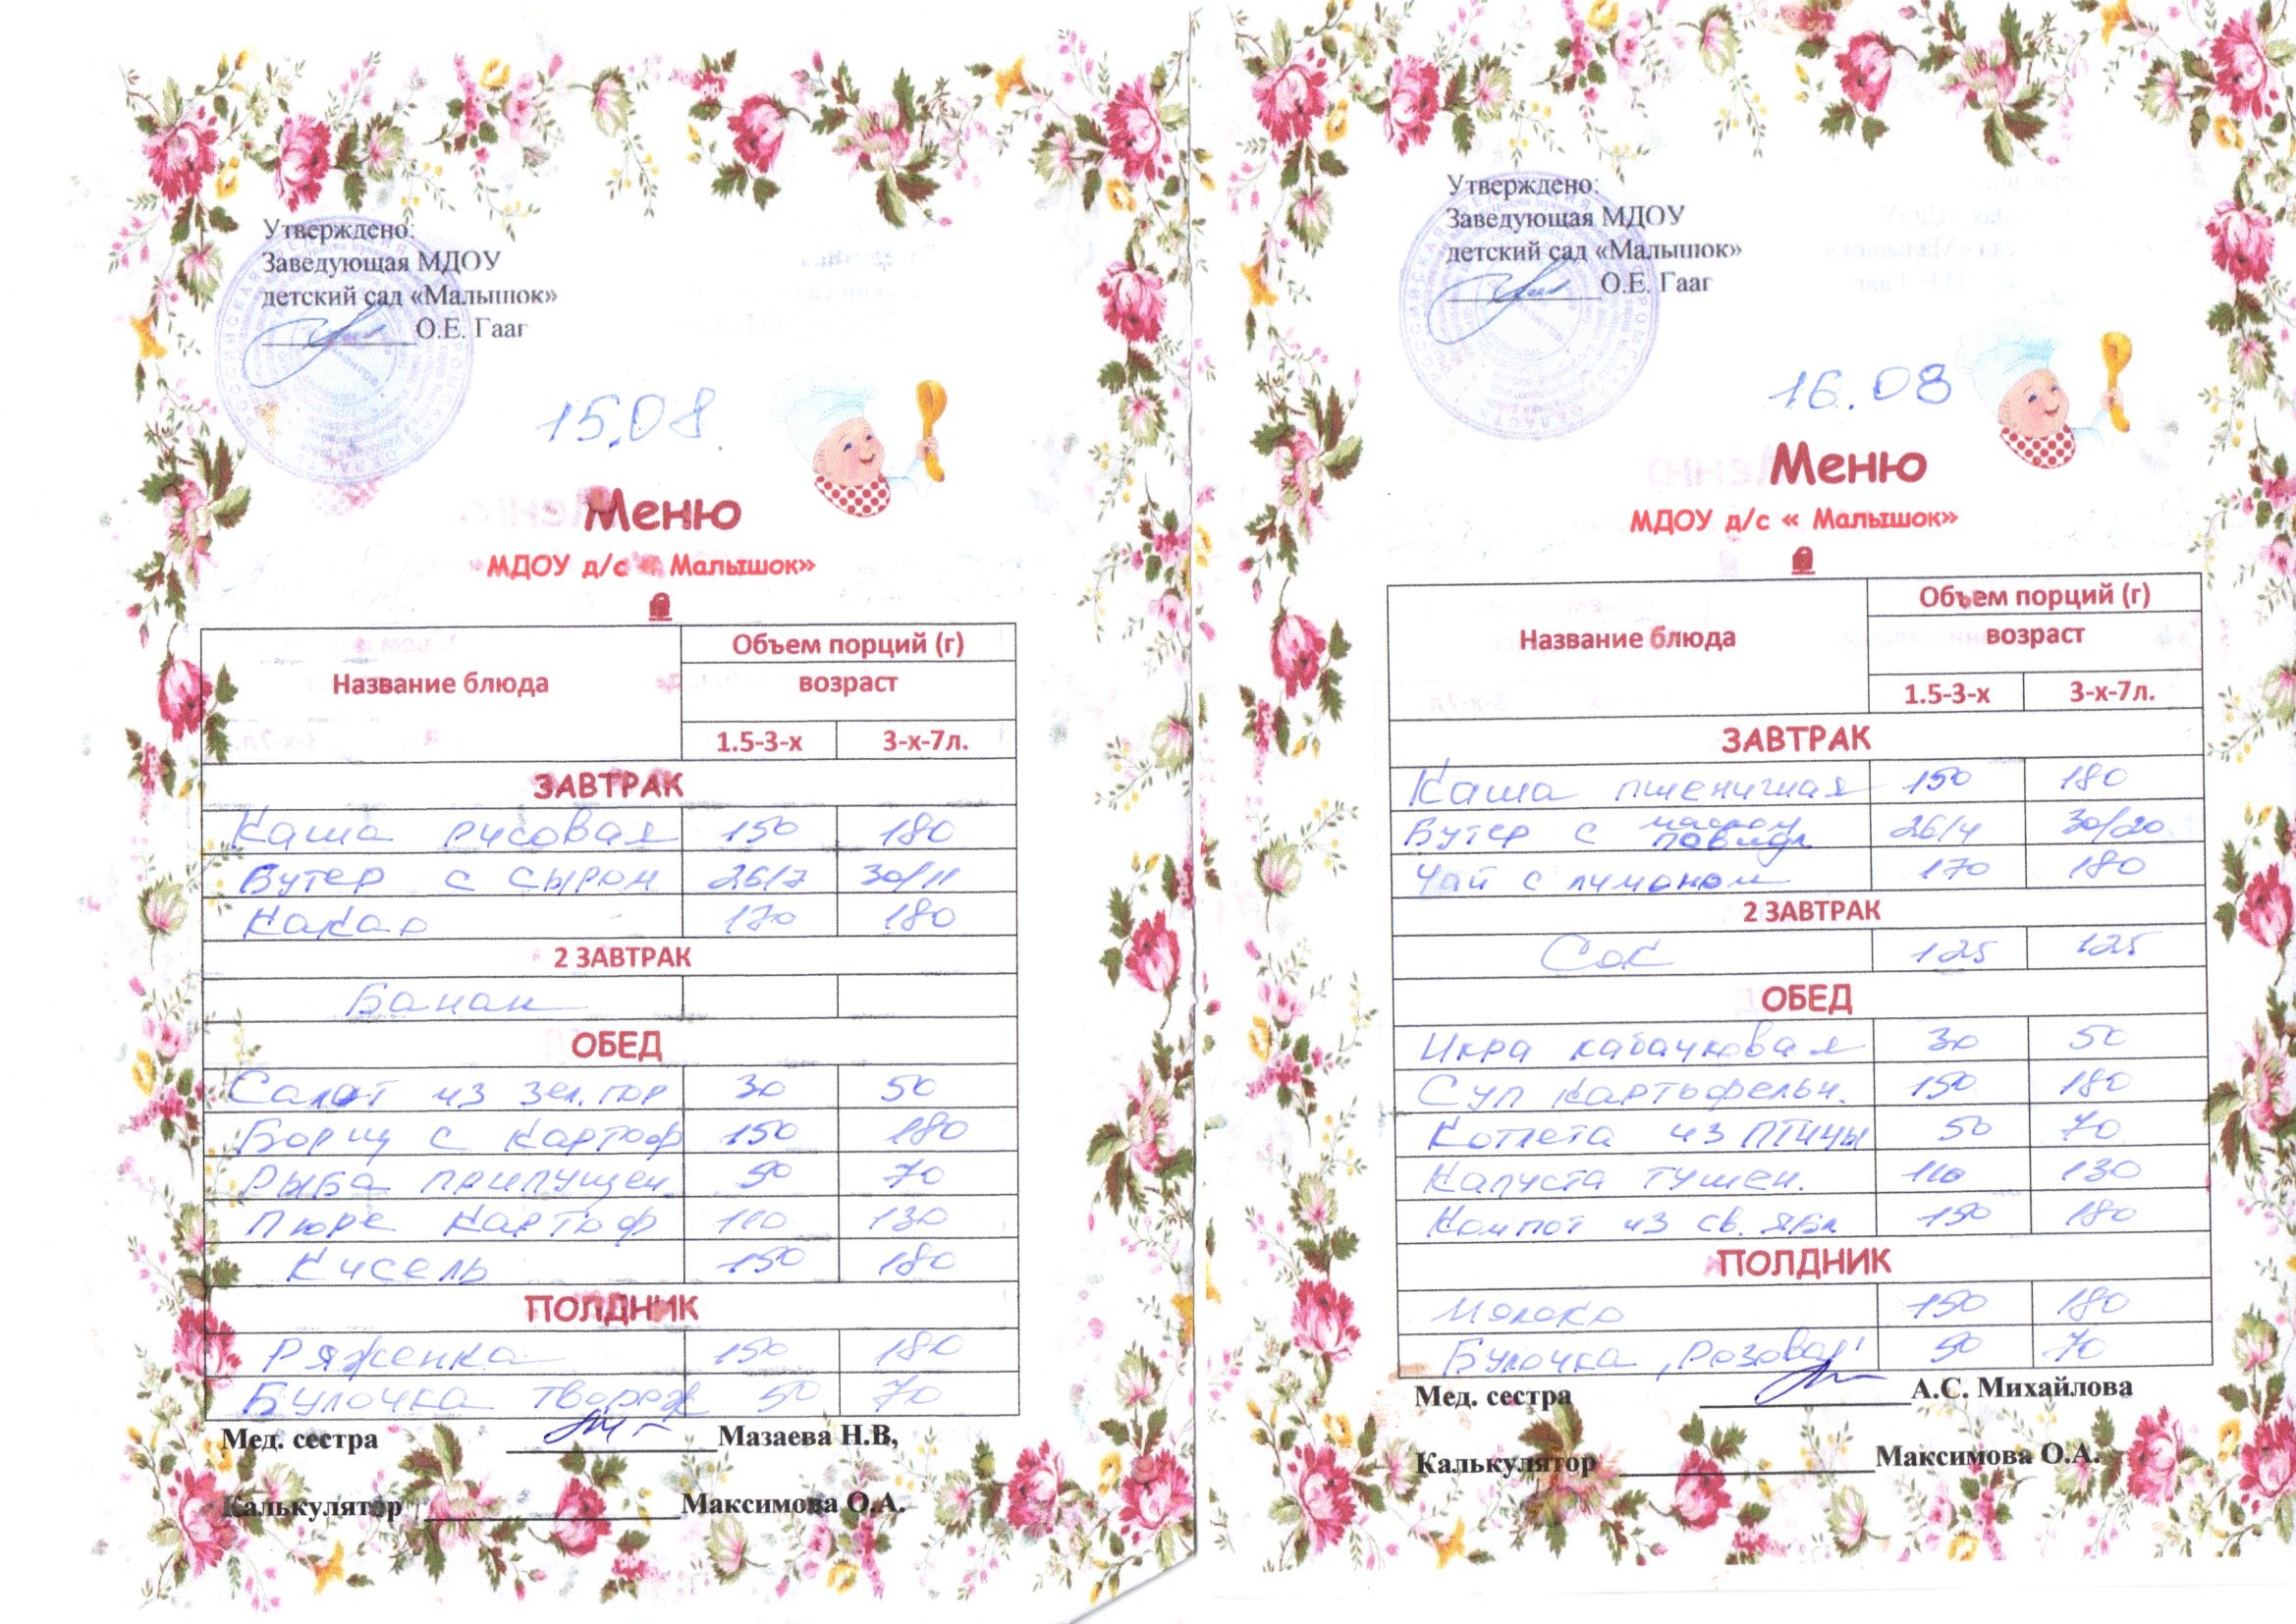 Утверждено:
Заведующая МДОУ
детский сад «Малышок»
О.Е. Гааг
15.08.
Меню
МДОУ д/с « Малышок»
Название блюда
Объем порций (г)
возраст
1.5-3-х 3-х-7л.
ЗАВТРАК
Каша рисовая 150 180
Бутер с сыром 26/7 30/11
Какао 170 180
2 ЗАВТРАК
Банан
ОБЕД
Салат из зел. гор 30 50
Борщ с картоф 150 180
Рыба припущен. 50 70
Пюре картоф 110 130
Кисель 150 180
ПОЛДНИК
Ряженка 150 180
Булочка творож 50 70
Мед. сестра Мазаева Н.В,
Калькулятор Максимова О.А.
Утверждено:
Заведующая МДОУ
детский сад «Малышок»
О.Е. Гааг
16.08
Меню
МДОУ д/с « Малышок»
Название блюда
Объем порций (г)
возраст
1.5-3-х 3-х-7л.
ЗАВТРАК
Каша пшеничная 150 180
Бутер с маслом повидл 26/4 30/20
Чай с лимоном 170 180
2 ЗАВТРАК
Сок 125 125
ОБЕД
Икра кабачковая 30 50
Суп картофельн. 150 180
Котлета из птицы 50 70
Капуста тушен. 110 130
Компот из св. ябл 150 180
ПОЛДНИК
Молоко 150 180
Булочка "Розовая" 50 70
Мед. сестра А.С. Михайлова
Калькулятор Максимова О.А.